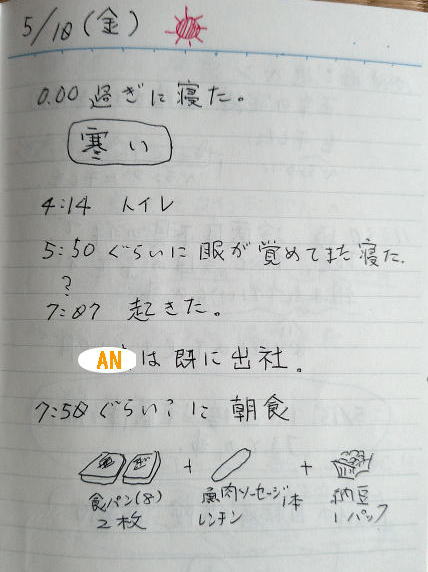 5/10(金)
0.00 過ぎに寝た。
寒い
4:14 トイレ
5:50 ぐらいに眼が覚めてまた寝た.
?
7:07 起きた。
AN は既に出社。
7:50 ぐらい?に 朝食
食パン(8) + 魚肉ソーセージ1本 + 納豆
2枚 レンチン 1パック